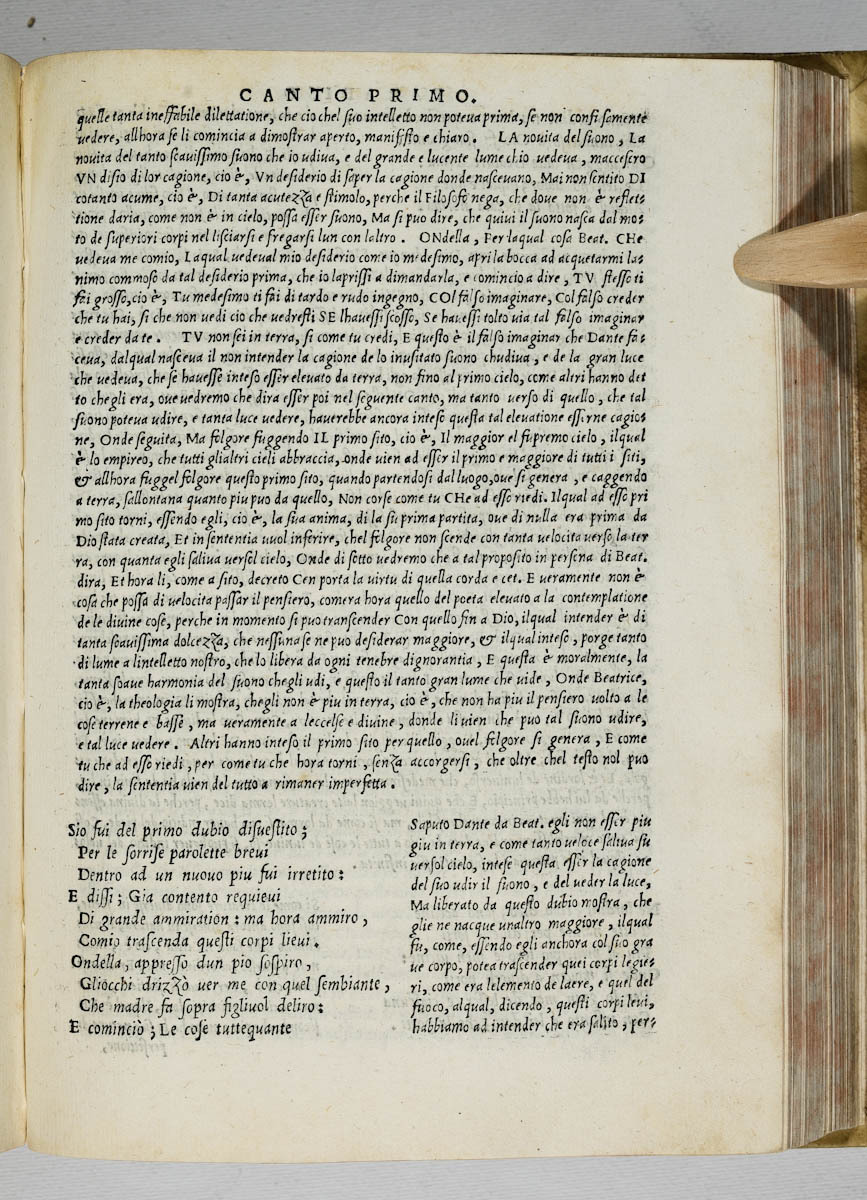 CANTO PRIMO.
quelle tanta ineffabile dilettatione, che cio chel suo intelletto non poteva prima, se non confusamente
vedere, allhora se li comincia a dimostrar aperto, manifesto e chiaro. LA novita del suono, La
novita del tanto soavissimo suono che io udiva, e del grande e lucente lume chio vedeva, maccesero
VN disio di lor cagione, cio è, Vn desiderio di saper la cagione donde nascevano, Mai non sentito DI
cotanto acume, cio è, Di tanta acutezza e stimolo, perche il Filosofo nega, che dove non è reflet-
tione daria, come non è in cielo, possa esser suono, Ma si puo dire, che quivi il suono nasca dal mo-
to de superiori corpi nel lisciarsi e fregarsi lun con laltro. ONdella, Per laqual cosa Beat. CHe
vedeva me comio, Laqual vedeva l mio desiderio come io medesimo, apri la bocca ad acquetarmi la-
nimo commosso da tal desiderio prima, che io laprissi a dimandarla, e comincio a dire, TV stesso ti
fai grosso, cio è, Tu medesimo ti fai di tardo e rudo ingegno, COl falso imaginare, Col falso creder
che tu hai, si che non vedi cio che vedresti SE lhavessi scosso, Se havessi tolto via tal falso imaginar
e creder da te. TV non sei in terra, si come tu credi, E questo è il falso imaginar che Dante fa-
ceva, dalqual nasceva il non intender la cagione de lo inusitato suono chudiva, e de la gran luce
che vedeva, che se havesse inteso esser elevato da terra, non fino al primo cielo, come altri hanno det
to chegli era, ove vedremo che dira esser poi nel seguente canto, ma tanto verso di quello, che tal
suono poteva udire, e tanta luce vedere, haverebbe ancora inteso questa tal elevatione esserne cagio-
ne, Onde seguita, Ma folgore fuggendo IL primo sito, cio è, Il maggior el supremo cielo, ilqual
è lo empireo, che tutti glialtri cieli abbraccia, onde vien ad esser il primo e maggiore di tutti i siti,
& allhora fuggel folgore questo primo sito, quando partendosi dal luogo, ove si genera, e caggendo
a terra, sallontana quanto piu puo da quello, Non corse come tu CHe ad esso riedi. Ilqual ad esso pri
mo sito torni, essendo egli, cio è, la sua anima, di la su prima partita, ove di nulla era prima da
Dio stata creata, Et in sententia vuol inferire, chel folgore non scende con tanta velocita verso la ter
ra, con quanta egli saliva versol cielo, Onde di sotto vedremo che a tal proposito in persona di Beat.
dira, Et hora li, come a sito, decreto Cen porta la virtu di quella corda e cet. E veramente non è
cosa che possa di velocita passar il pensiero, comera hora quello del poeta elevato a la contemplatione
de le divine cose, perche in momento si puo transcender Con quello fin a Dio, ilqual intender è di
tanta soavissima dolcezza, che nessuna se ne puo desiderar maggiore, & ilqual inteso, porge tanto
di lume a lintelletto nostro, che lo libera da ogni tenebre dignorantia, E questa è moralmente, la
tanta soave harmonia del suono chegli udi, e questo il tanto gran lume che vide, Onde Beatrice,
cio è, la theologia li mostra, chegli non è piu in terra, cio è, che non ha piu il pensiero volto a le
cose terrene e basse, ma veramente a leccelse e divine, donde li vien che puo tal suono udire,
e tal luce vedere. Altri hanno inteso il primo sito per quello, ovel folgore si genera, E come
tu che ad esso riedi, per come tu che hora torni, senza accorgersi, che oltre chel testo nol puo
dire, la sententia vien del tutto a rimaner imperfetta.
Sio fui del primo dubio disvestito;
Per le sorrise parolette brevi
Dentro ad un nuovo piu fui irretito:
E dissi; Gia contento requievi
Di grande ammiration: ma hora ammiro,
Comio trascenda questi corpi lievi.
Ondella, appresso dun pio sospiro,
Gliocchi drizzò ver me con quel sembiante,
Che madre fa sopra figliuol deliro:
E cominciò; Le cose tuttequante
Saputo Dante da Beat. egli non esser piu
giu in terra, e come tanto veloce saliva su
versol cielo, intese questa esser la cagione
del suo udir il suono, e del veder la luce,
Ma liberato da questo dubio mostra, che
glie ne nacque unaltro maggiore, ilqual
fu, come, essendo egli anchora col suo gra
ve corpo, potea trascender quei corpi legie-
ri, come era lelemento de laere, e quel del
fuoco, alqual, dicendo, questi corpi levi,
habbiamo ad intender che era salito, per-